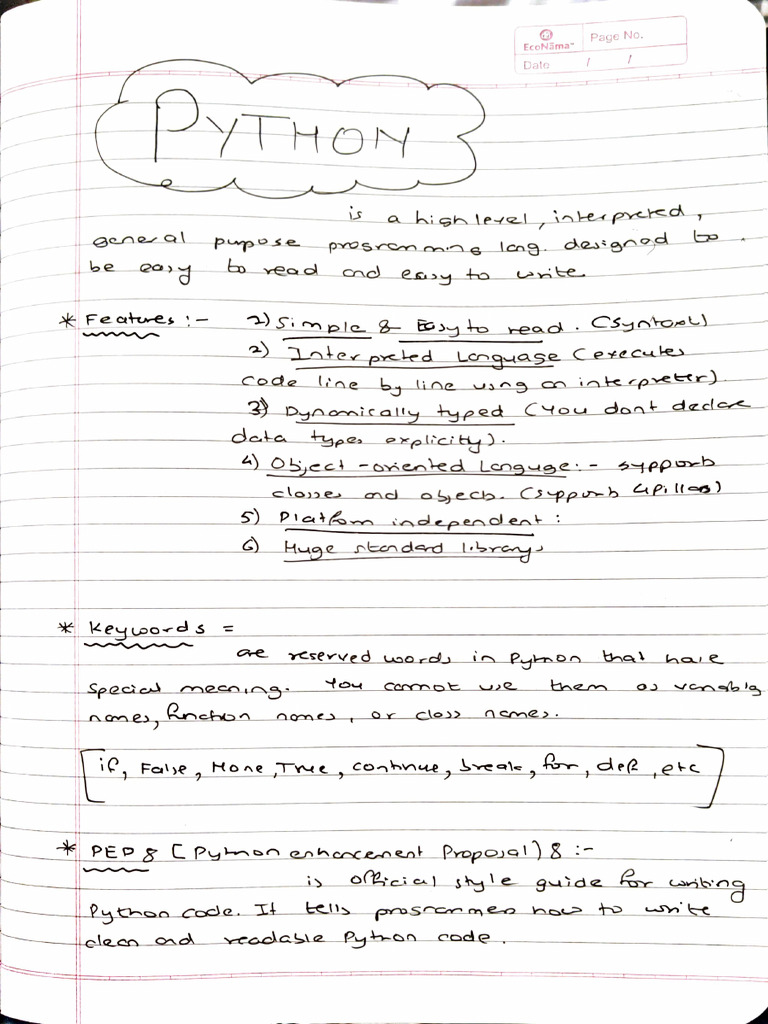 EcoNāma
Page No.
Date / /
PYTHON
is a high level, interpreted,
general purpose programming lang. designed to
be easy to read and easy to write.
* Features :- 1) Simple & Easy to read. (Syntax)
2) Interpreted Language (executes
code line by line using an interpreter).
3) Dynamically typed (You dont declare
data types explicity).
4) Object-oriented Languge:- supports
classes and objects. (supports 4 pillars)
5) Platform independent :
6) Huge standard library
* Keywords =
are reserved words in Python that have
special meaning. You cannot use them as variable
names, function names, or class names.
[if, False, None, True, continue, break, for, def, etc]
* PEP 8 [Python enhancement Proposal) 8 :-
is official style guide for writing
Python code. It tells programmers how to write
clean and readable Python code.